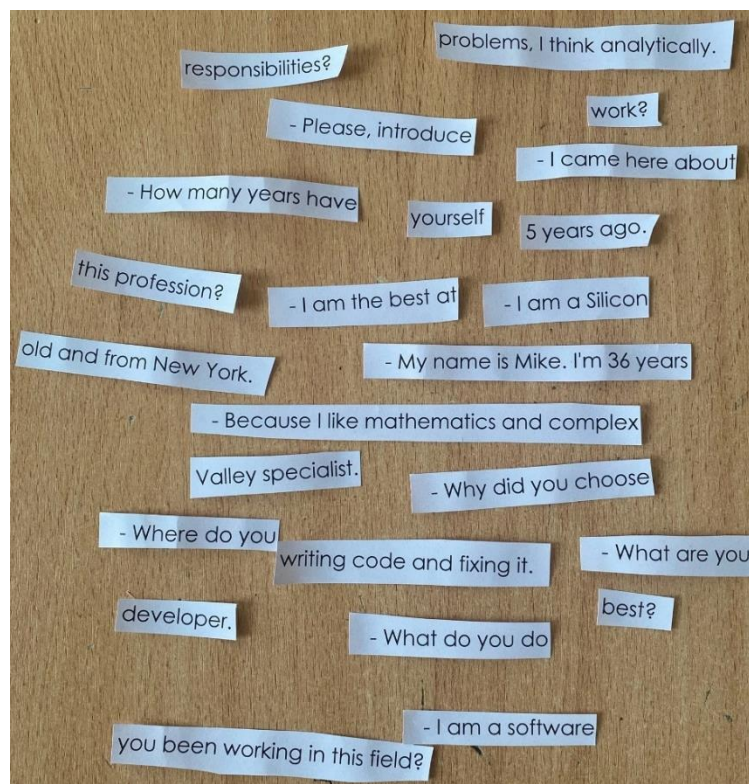 problems, I think analytically.
responsibilities?
work?
- Please, introduce
- I came here about
- How many years have
yourself
5 years ago.
this profession?
- I am the best at
- I am a Silicon
old and from New York.
- My name is Mike. I'm 36 years
- Because I like mathematics and complex
Valley specialist.
- Why did you choose
- Where do you
writing code and fixing it.
- What are you
developer.
best?
- What do you do
- I am a software
you been working in this field?